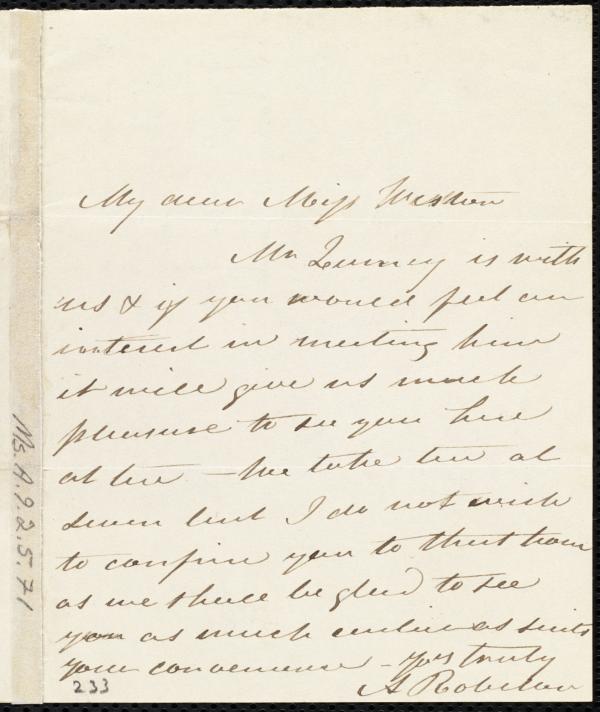 My dear Miss Weston
Mr Quincy is with
us & if you would feel an
interest in meeting him
it will give us much
pleasure to see you here
at tea - We take tea at
seven but I do not wish
to confine you to that hour
as we shall be glad to see
you as much earlier as suits
your convenience - Yrs truly
A Robeson
233
Ms. A. 9. 2. 5. 71